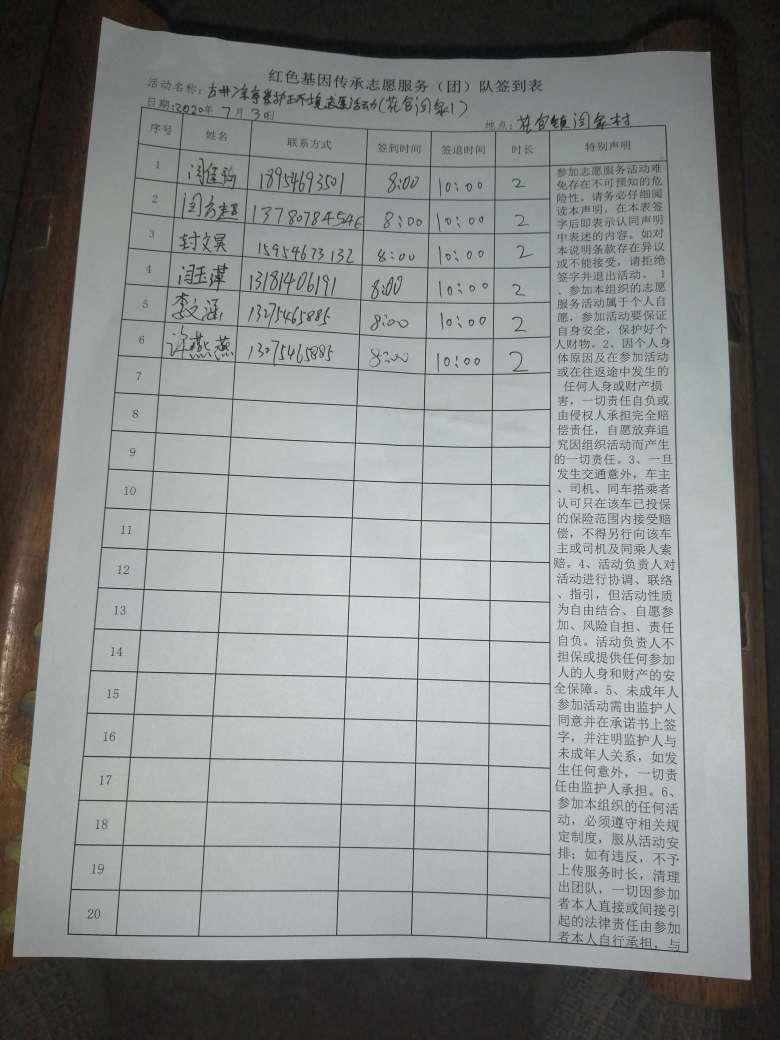 红色基因传承志愿服务（团）队签到表
活动名称：
日期：2020年 7月 3日
地点：花官镇闫家村
序号 姓名 联系方式 签到时间 签退时间 时长 特别声明
1 18954693501 8:00 10:00 2
2 13780784546 8:00 10:00 2
3 封文昊 15954673132 8:00 10:00 2
4 13181406191 8:00 10:00 2
5 李文涵 13075465885 8:00 10:00 2
6 许燕燕 13075465885 8:00 10:00 2
7
8
9
10
11
12
13
14
15
16
17
18
19
20
参加志愿服务活动难
免存在不可预知的危
险性。请务必仔细阅
读本声明，在本表签
字后即表示认同声明
中表述的内容。如对
本说明条款存在异议
或不能接受，请拒绝
签字并退出活动。 1
、参加本组织的志愿
服务活动属于个人自
愿，参加活动要保证
自身安全，保护好个
人财物。2、因个人身
体原因及在参加活动
或在往返途中发生的
任何人身或财产损
害，一切责任自负或
由侵权人承担完全赔
偿责任，自愿放弃追
究因组织活动而产生
的一切责任。3、一旦
发生交通意外，车主
、司机、同车搭乘者
认可只在该车已投保
的保险范围内接受赔
偿，不得另行向该车
主或司机及同乘人索
赔。4、活动负责人对
活动进行协调、联络
、指引，但活动性质
为自由结合、自愿参
加、风险自担、责任
自负。活动负责人不
担保或提供任何参加
人的人身和财产的安
全保障。5、未成年人
参加活动需由监护人
同意并在承诺书上签
字，并注明监护人与
未成年人关系，如发
生任何意外，一切责
任由监护人承担。6、
参加本组织的任何活
动，必须遵守相关规
定制度，服从活动安
排；如有违反，不予
上传服务时长，清理
出团队，一切因参加
者本人直接或间接引
起的法律责任由参加
者本人自行承担，与